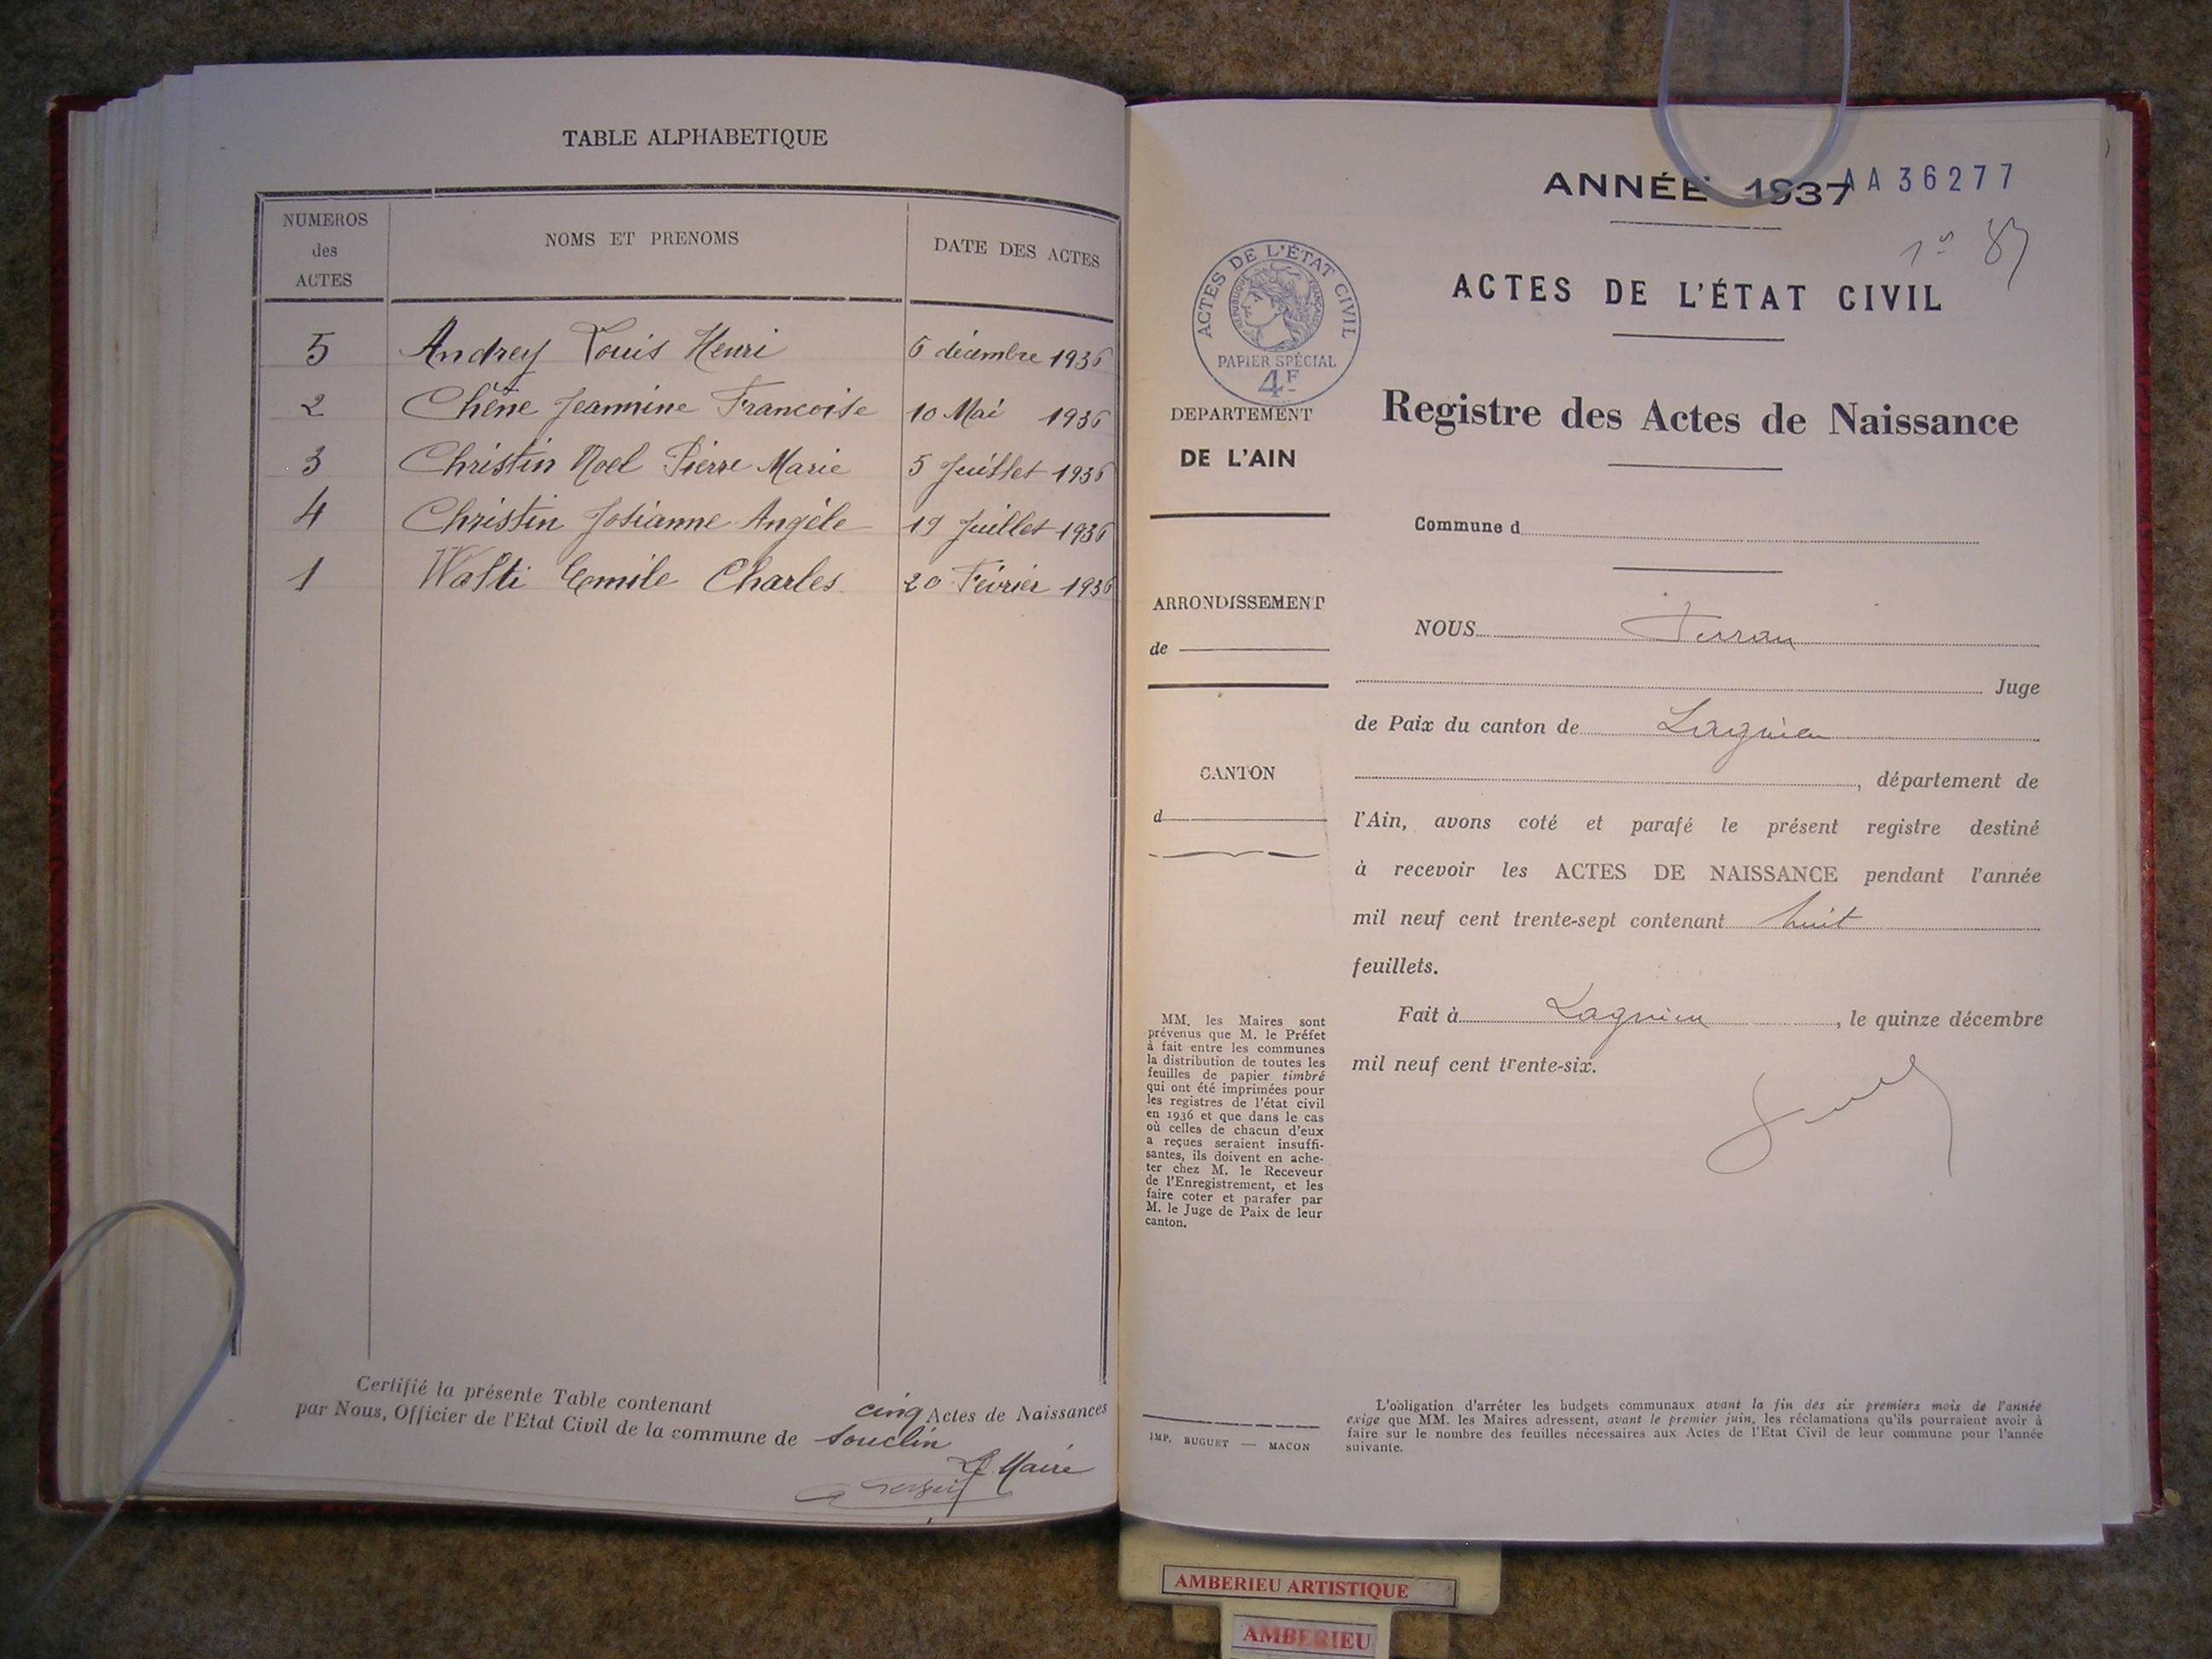 TABLE ALPHABETIQUE
NUMEROS
des
ACTES
NOMS ET PRENOMS
DATE DES ACTES
5 Andrey Louis Henri 6 décembre 1936
2 Chêne Jeannine Francoise 10 Mai 1936
3 Christin Noel Pierre Marie 5 Juillet 1936
4 Christin Josianne Angèle 19 Juillet 1936
1 Walti Emile Charles 20 Février 1936
Certifié la présente Table contenant cinq Actes de Naissances
par Nous, Officier de l'Etat Civil de la commune de Souclin
Le Maire
ANNÉE 1937
AA 36277
ACTES DE L'ÉTAT CIVIL
REPUBLIQUE FRANÇAISE
PAPIER SPÉCIAL
4F
ACTES DE L'ÉTAT CIVIL
Registre des Actes de Naissance
DEPARTEMENT
DE L'AIN
ARRONDISSEMENT
de
CANTON
d
MM. les Maires sont
prévenus que M. le Préfet
à fait entre les communes
la distribution de toutes les
feuilles de papier timbré
qui ont été imprimées pour
les registres de l'état civil
en 1936 et que dans le cas
où celles de chacun d'eux
a reçues seraient insuffi-
santes, ils doivent en ache-
ter chez M. le Receveur
de l'Enregistrement, et les
faire coter et parafer par
M. le Juge de Paix de leur
canton.
IMP. BUGUET — MACON
Commune d
NOUS
Juge
de Paix du canton de Lagnieu
, département de
l'Ain, avons coté et parafé le présent registre destiné
à recevoir les ACTES DE NAISSANCE pendant l'année
mil neuf cent trente-sept contenant huit
feuillets.
Fait à Lagnieu, le quinze décembre
mil neuf cent trente-six.
L'obligation d'arrêter les budgets communaux avant la fin des six premiers mois de l'année
exige que MM. les Maires adressent, avant le premier juin, les réclamations qu'ils pourraient avoir à
faire sur le nombre des feuilles nécessaires aux Actes de l'Etat Civil de leur commune pour l'année
suivante.
AMBERIEU ARTISTIQUE
AMBERIEU